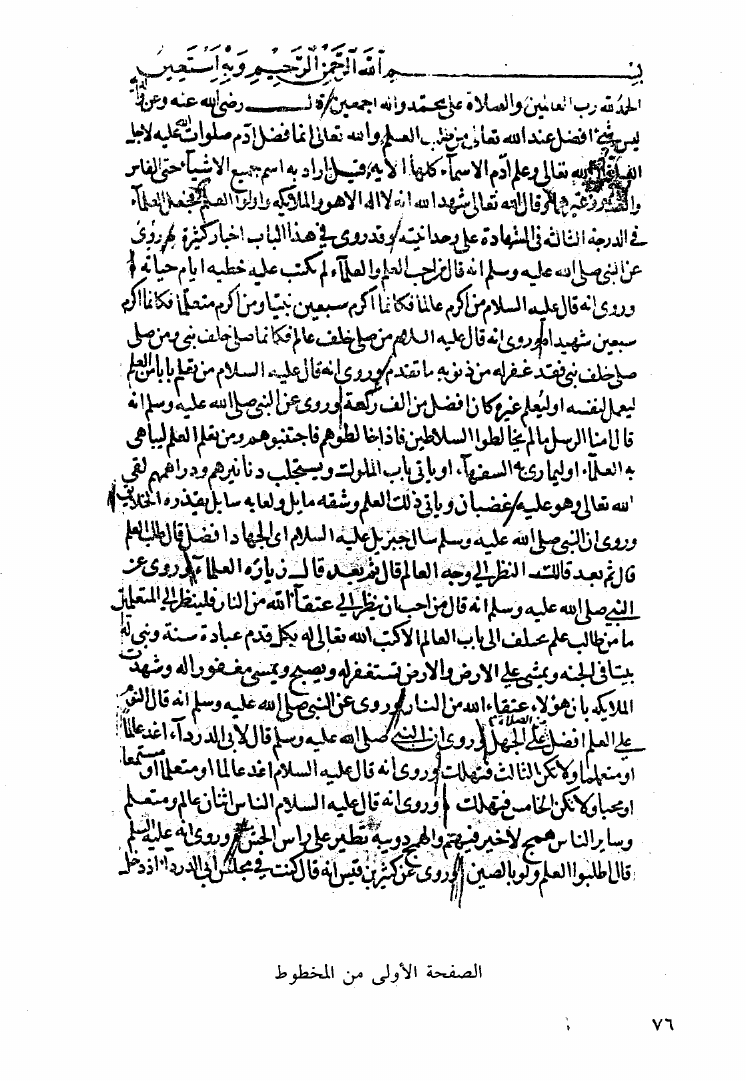 بسم الله الرحمن الرحيم وبه استعين
الحمد لله رب العالمين والصلاة على محمد واله اجمعين قال رضي الله عنه وعن
ليس شيء افضل عند الله تعالى من طلب العلم والله تعالى انما فضل ادم صلوات الله عليه لاجل
الله تعالى وعلم آدم الاسماء كلها الاية فقيل اراد به اسم جميع الاشياء حتى الفاس
وقال الله تعالى شهد الله انه لا اله الا هو والملائكه واولوا العلم فجعل العلماء
في الدرجة الثالثه في الشهادة على وحدانيته وقد روى في هذا الباب اخبار كثيرة روى
عن النبي صلى الله عليه وسلم انه قال من احب العلم والعلماء لم تكتب عليه خطيه ايام حياته
وروى انه قال عليه السلام من اكرم عالما فكانما اكرم سبعين نبيا ومن اكرم متعلما فكانما اكرم
سبعين شهيدا وروى انه قال عليه السلام من صلى خلف عالم فكانما صلى خلف نبي ومن صلى
صلى خلف نبي فقد غفر له من ذنوبه ما تقدم وروى انه قال عليه السلام من تعلم بابا من العلم
ليعمل لنفسه او ليعلم غيره كان افضل من الف ركعة وروى عن النبي صلى الله عليه وسلم انه
قال امنا الرسل ما لم يخالطوا السلاطين فاذا خالطوهم فاجتنبوهم ومن تعلم العلم ليباهى
به العلماء او ليمارى به السفهاء او ياتى باب الملوك ويستجلب دنانيرهم ودراهمهم لقى
الله تعالى وهو عليه غضبان وياتى ذلك العلم وشقه مايل ولعابه سايل يقذره الخلايق
وروى ان النبي صلى الله عليه وسلم سال جبريل عليه السلام اى الجهاد افضل قال طلب العلم
قال ثم بعد قالت النظر الى وجه العالم قال ثم بعد قال زيارة العلماء وروى عن
النبي صلى الله عليه وسلم انه قال من احب ان ينظر الى عتقاء الله من النار فلينظر الى المتعلمين
ما من طالب علم يختلف الى باب العالم الا كتب الله تعالى له بكل قدم عبادة سنة وبنى له
بيتا في الجنه ويمشى على الارض والارض تستغفر له ويصبح ويمسى مغفورا له وشهدت
الملايكه بان هولاء عتقاء الله من النار وروى عن النبي صلى الله عليه وسلم انه قال النوم
على العلم افضل من الصلاة على الجهل وروى ان النبي صلى الله عليه وسلم قال لابي الدرداء اغد عالما
او متعلما ولا تكن الثالث فتهلك وروى انه قال عليه السلام اغد عالما او متعلما او مستمعا
او محبا ولا تكن الخامس فتهلك وروى انه قال عليه السلام الناس اثنان عالم ومتعلم
وساير الناس همج لا خير فيهم والهمج دويبة تطير على راس الجيف وروى انه عليه السلام
قال اطلبوا العلم ولو بالصين وروى عن كثير بن قيس انه قال كنت في مجلس ابي الدرداء اذ دخل
الصفحة الأولى من المخطوط
٧٦